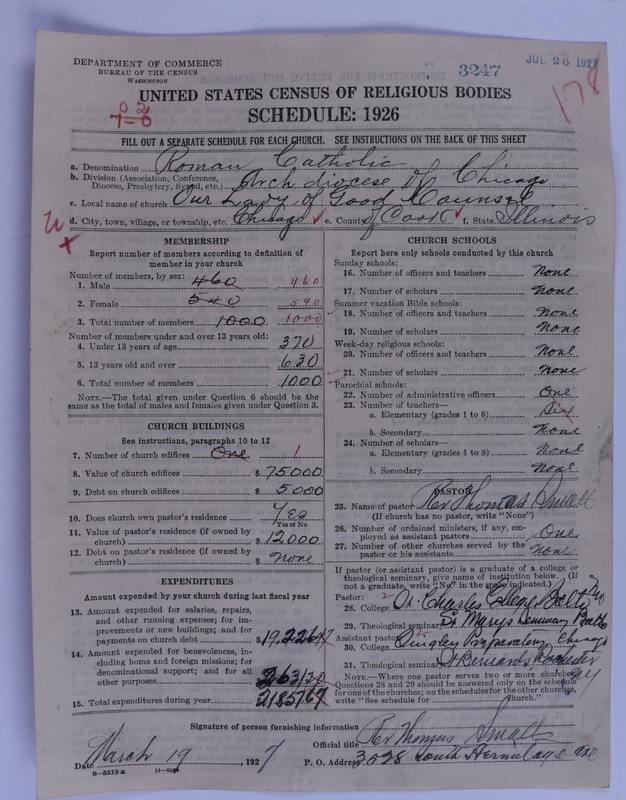 DEPARTMENT OF COMMERCE
BUREAU OF THE CENSUS
WASHINGTON
3247
JUL 28 1927
178
0 2
7-8
UNITED STATES CENSUS OF RELIGIOUS BODIES
SCHEDULE: 1926
FILL OUT A SEPARATE SCHEDULE FOR EACH CHURCH. SEE INSTRUCTIONS ON THE BACK OF THIS SHEET
a. Denomination Roman Catholic
b. Division (Association, Conference, Diocese, Presbytery, Synod, etc.) Arch diocese of Chicago
c. Local name of church Our Lady of Good Counsel
d. City, town, village, or township, etc. Chicago e. County of Cook f. State Illinois
MEMBERSHIP
Report number of members according to definition of
member in your church
Number of members, by sex:
1. Male 460 460
2. Female 540 540
3. Total number of members 1000 1000
Number of members under and over 13 years old:
4. Under 13 years of age 370
5. 13 years old and over 630
6. Total number of members 1000
NOTE.—The total given under Question 6 should be the
same as the total of males and females given under Question 3.
CHURCH BUILDINGS
See instructions, paragraphs 10 to 12
7. Number of church edifices One 1
8. Value of church edifices $ 75000
9. Debt on church edifices $ 5000
10. Does church own pastor's residence Yes
Yes or No
11. Value of pastor's residence (if owned by
church) $ 12000
12. Debt on pastor's residence (if owned by
church) $ None
EXPENDITURES
Amount expended by your church during last fiscal
year
13. Amount expended for salaries, repairs,
and other running expenses; for im-
provements or new buildings; and for
payments on church debt $
14. Amount expended for benevolences, in-
cluding home and foreign missions; for
denominational support; and for all
other purposes
15. Total expenditures during year
CHURCH SCHOOLS
Report here only schools conducted by this church
Sunday schools:
16. Number of officers and teachers None
17. Number of scholars None
Summer vacation Bible schools:
18. Number of officers and teachers None
19. Number of scholars None
Week-day religious schools:
20. Number of officers and teachers None
21. Number of scholars None
Parochial schools:
22. Number of administrative officers One
23. Number of teachers—
a. Elementary (grades 1 to 8) Six
b. Secondary None
24. Number of scholars—
a. Elementary (grades 1 to 8) None
b. Secondary None
PASTOR
25. Name of pastor Rev Thomas Small
(If church has no pastor, write "None")
26. Number of ordained ministers, if any, em-
ployed as assistant pastors One
27. Number of other churches served by the
pastor or his assistants None
If pastor (or assistant pastor) is a graduate of a college or
theological seminary, give name of institution below. (If
not a graduate, write "No" in the space indicated.)
Pastor:
28. College St. Charles College Balto Md
29. Theological seminary St Marys Seminary Balto
Assistant pastor:
30. College Quigley Preparatory Chicago
31. Theological seminary St Bernards Rochester NY
NOTE.—Where one pastor serves two or more churches,
Questions 28 and 29 should be answered only on the schedule
for one of the churches; on the schedules for the other churches,
write "See schedule for church."
Signature of person furnishing information
Official title Rev Thomas Small
Date March 19 1927 P. O. Address South Hermitage ave
8-5518a 11-9084